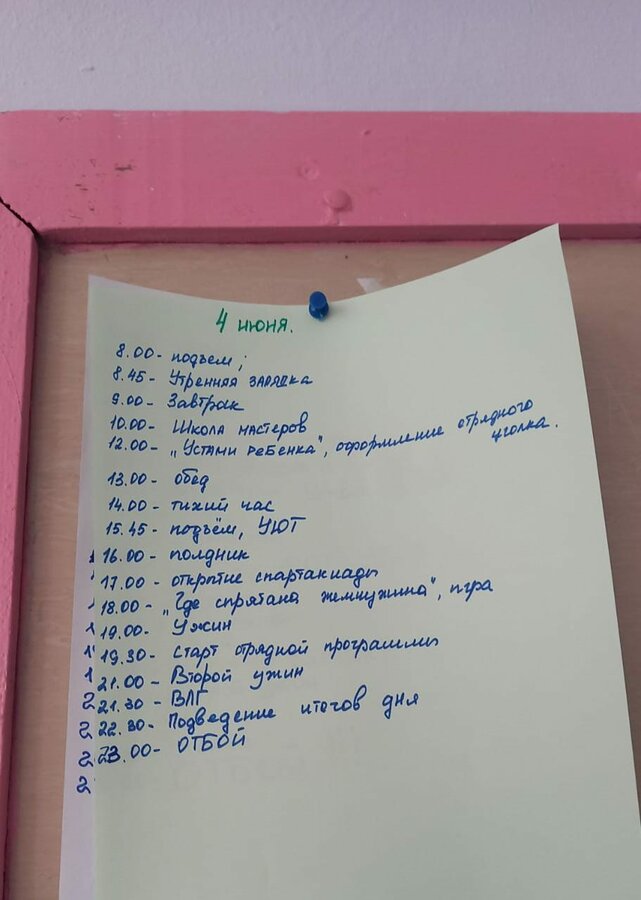 4 июня.
8.00- подъем;
8.45- Утренняя зарядка
9.00- Завтрак
10.00- Школа мастеров
12.00- „Устами ребенка", оформление отрядного
уголка.
13.00- обед
14.00- тихий час
15.45- подъём, УЮТ
16.00- полдник
17.00- открытие спартакиады
18.00- „Где спрятана жемчужина", игра
19.00- Ужин
19.30- Старт отрядной программы
21.00- Второй ужин
21.30- ВЛГ
22.30- Подведение итогов дня
23.00- ОТБОЙ